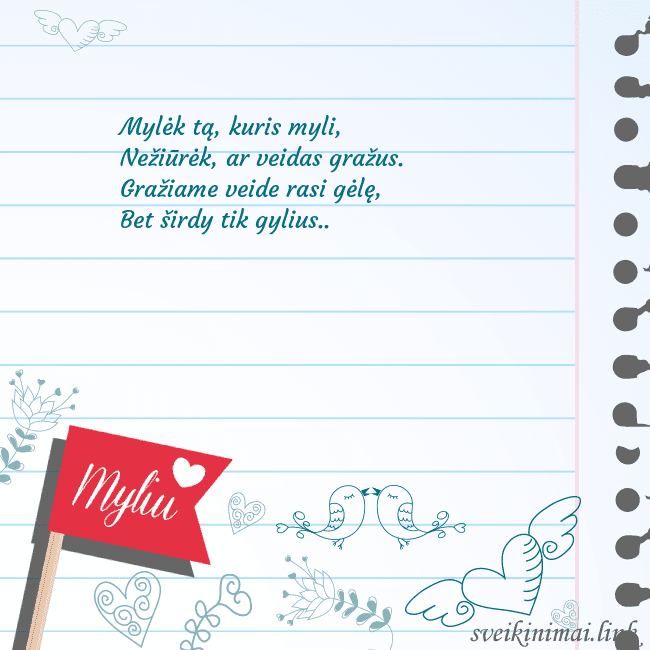 Mylėk tą, kuris myli,
Nežiūrėk, ar veidas gražus.
Gražiame veide rasi gėlę,
Bet širdy tik gylius..
Myliu
sveikinimai.link